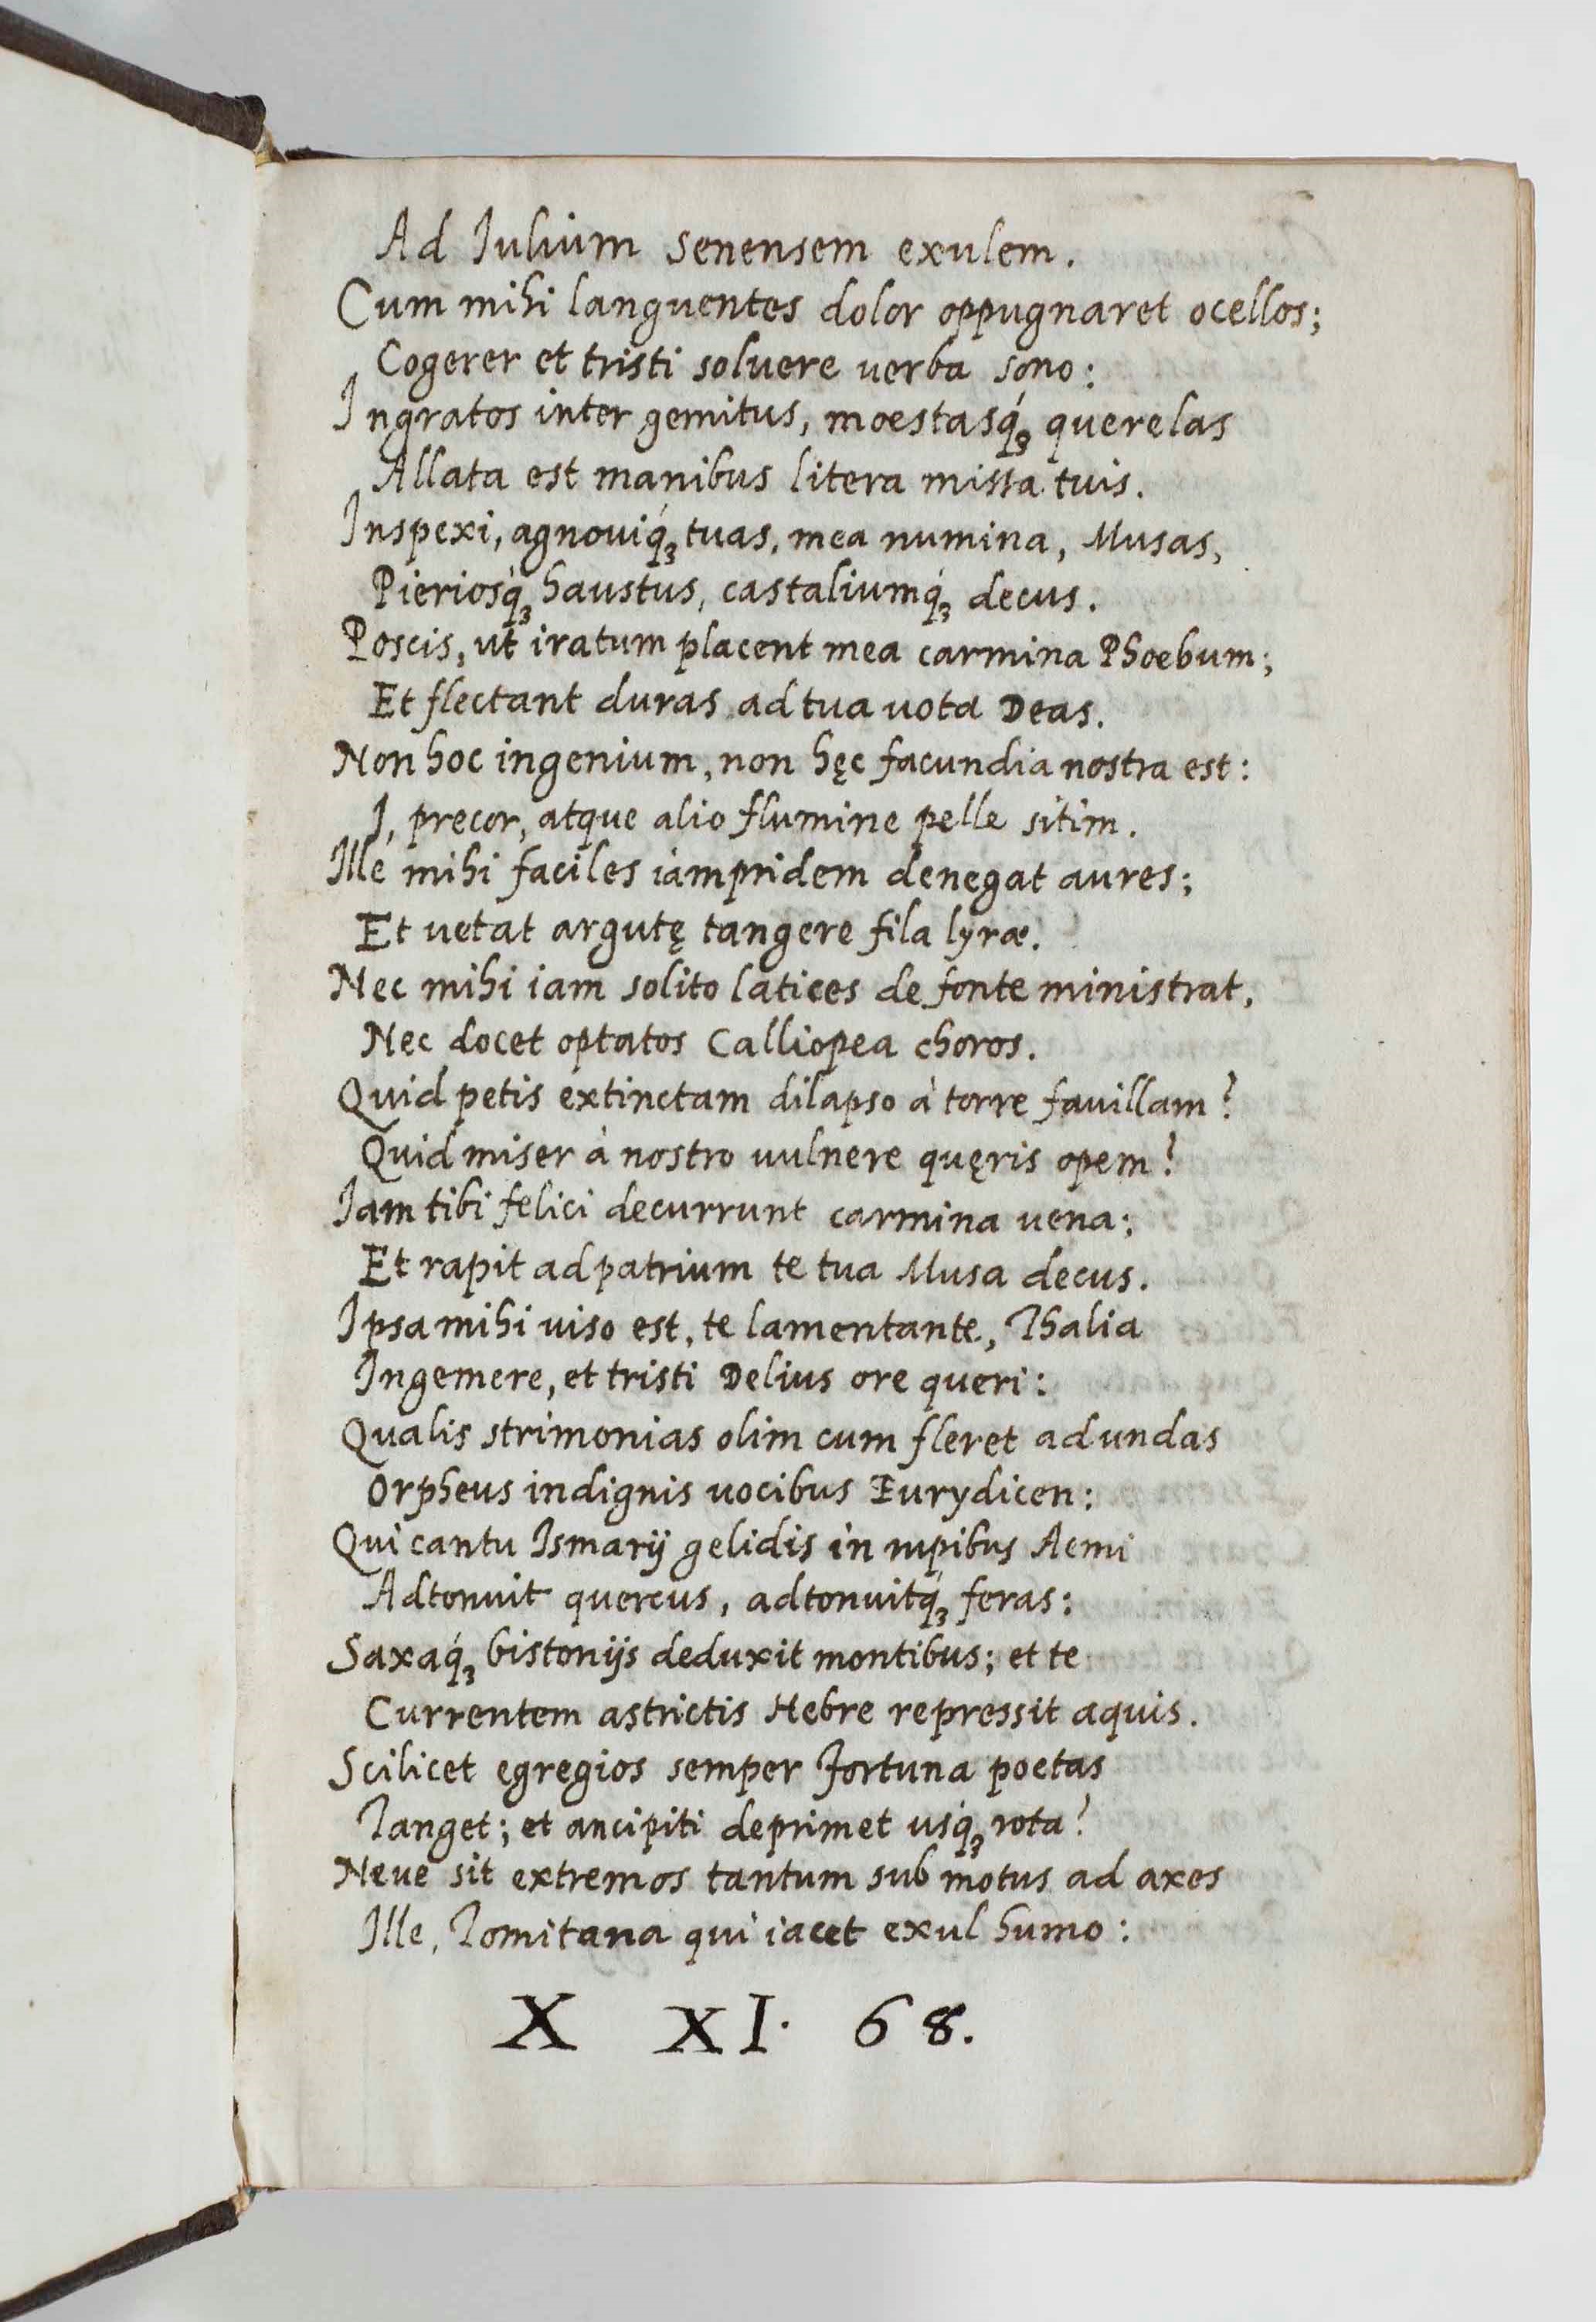 Ad Iulium senensem exulem.
Cum mihi languentes dolor oppugnaret ocellos;
Cogerer et tristi soluere uerba sono:
Ingratos inter gemitus, moestasq́ꝫ querelas
Allata est manibus litera missa tuis.
Inspexi, agnouiq́ꝫ tuas, mea numina, Musas,
Pieriosq́ꝫ haustus, castaliumq́ꝫ decus.
Poscis, ut iratum placent mea carmina Phoebum;
Et flectant duras ad tua uota Deas.
Non hoc ingenium, non hęc facundia nostra est:
I, precor, atque alio flumine pelle sitim.
Ille mihi faciles iampridem denegat aures;
Et uetat argutę tangere fila lyræ.
Nec mihi iam solito latices de fonte ministrat,
Nec docet optatos Calliopea choros.
Quid petis extinctam dilapso à torre fauillam?
Quid miser à nostro uulnere quęris opem?
Iam tibi felici decurrunt carmina uena;
Et rapit ad patrium te tua Musa decus.
Ipsa mihi uiso est, te lamentante, Thalia
Ingemere, et tristi Delius ore queri:
Qualis strimonias olim cum fleret ad undas
Orpheus indignis uocibus Eurydicen:
Qui cantu Ismarij gelidis in rupibus Aemi
Adtonuit quercus, adtonuitq́ꝫ feras:
Saxaq́ꝫ bistonijs deduxit montibus; et te
Currentem astrictis Hebre repressit aquis.
Scilicet egregios semper Fortuna poetas
Tanget; et ancipiti deprimet usq́ꝫ rota?
Neue sit extremos tantum sub motus ad axes
Ille, Tomitana qui iacet exul humo:
X XI. 68.